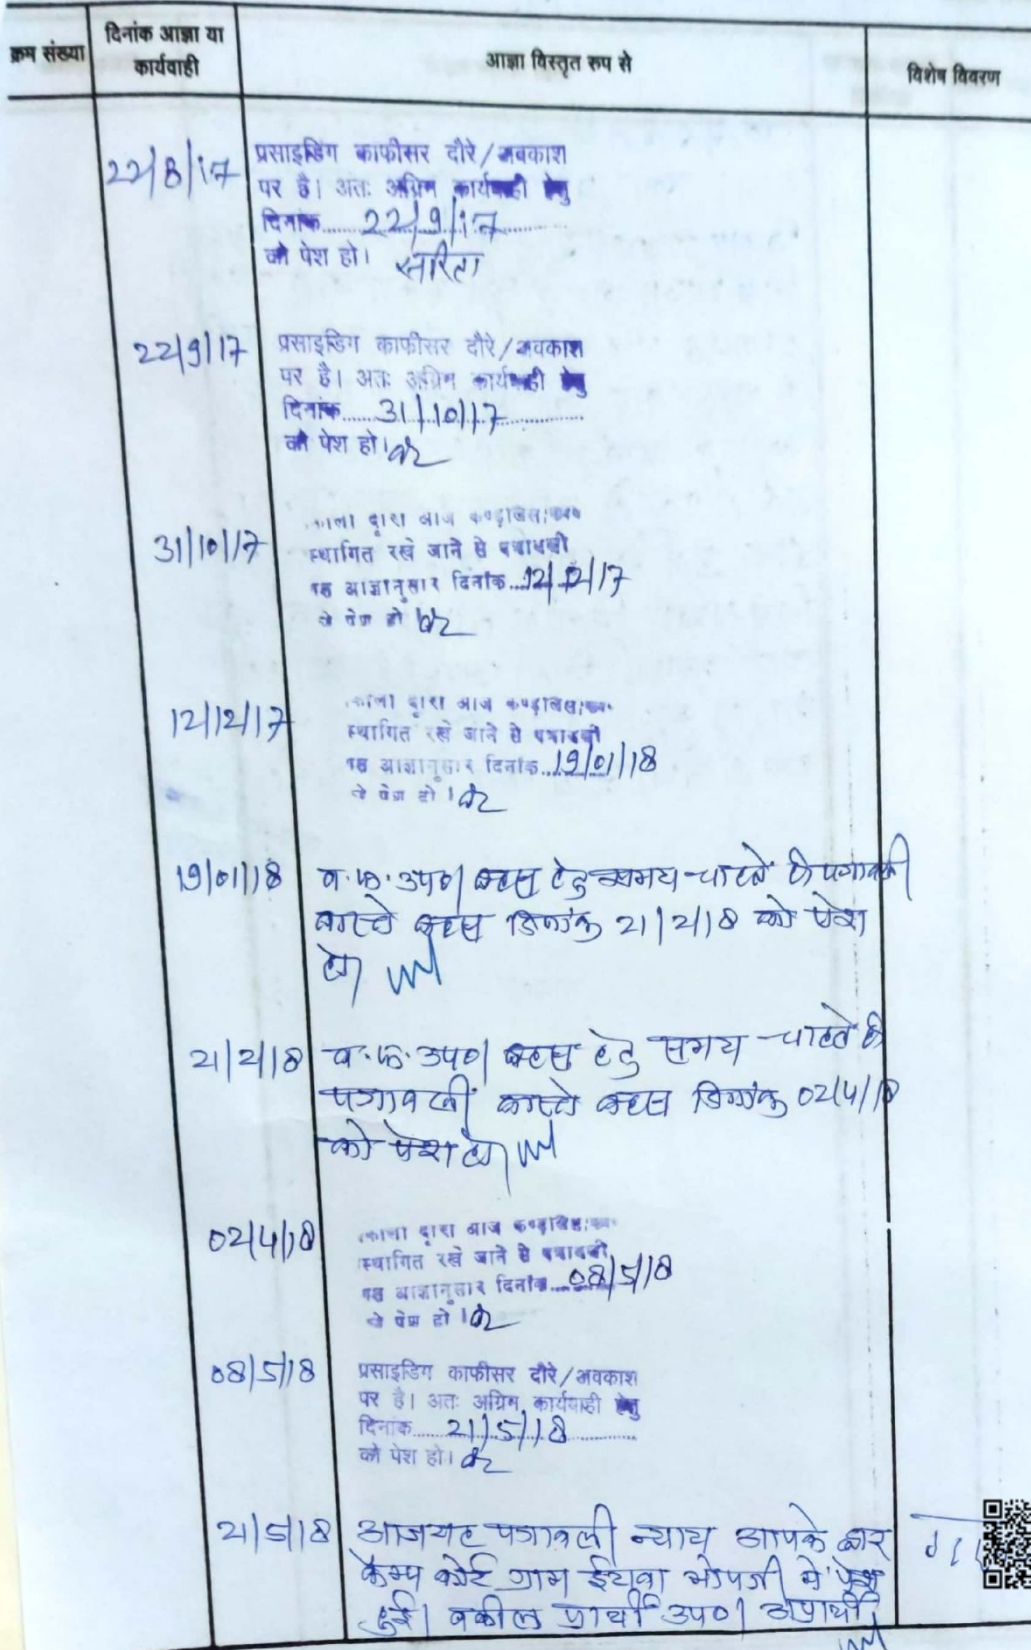 क्रम संख्या
दिनांक आज्ञा या
कार्यवाही
आज्ञा विस्तृत रुप से
विशेष विवरण
22/8/17
प्रसाइडिंग काफीसर दौरे/अवकाश
पर है। अतः अग्रिम कार्यवाही हेतु
दिनांक......22/9/17......
को पेश हो। सरिता
22/9/17
प्रसाइडिंग काफीसर दौरे/अवकाश
पर है। अतः अग्रिम कार्यवाही हेतु
दिनांक......31/10/17......
को पेश हो।
31/10/17
द्वारा आज
स्थागित रखे जाने से पत्रावली
आज्ञानुसार दिनांक...12/12/17
पेश हो
12/12/17
द्वारा आज
स्थागित रखे जाने से पत्रावली
आज्ञानुसार दिनांक...19/01/18
पेश हो।
19/01/18
व.फ. उप0। बहस हेतु समय चाहते है पत्रावली
वास्ते बहस दिनांक 21/2/18 को पेश
हो।
21/2/18
व.फ. उप0। बहस हेतु समय चाहते है
पत्रावली वास्ते बहस दिनांक 02/4/18
को पेश हो।
02/4/18
द्वारा आज
स्थागित रखे जाने से पत्रावली
आज्ञानुसार दिनांक...08/5/18
पेश हो।
08/5/18
प्रसाइडिंग काफीसर दौरे/अवकाश
पर है। अतः अग्रिम कार्यवाही हेतु
दिनांक......21/5/18......
को पेश हो।
21/5/18
आज यह पत्रावली न्याय आपके द्वार
केम्प कोर्ट ग्राम में पेश
हुई। वकील प्रार्थी उप0। अप्रार्थी